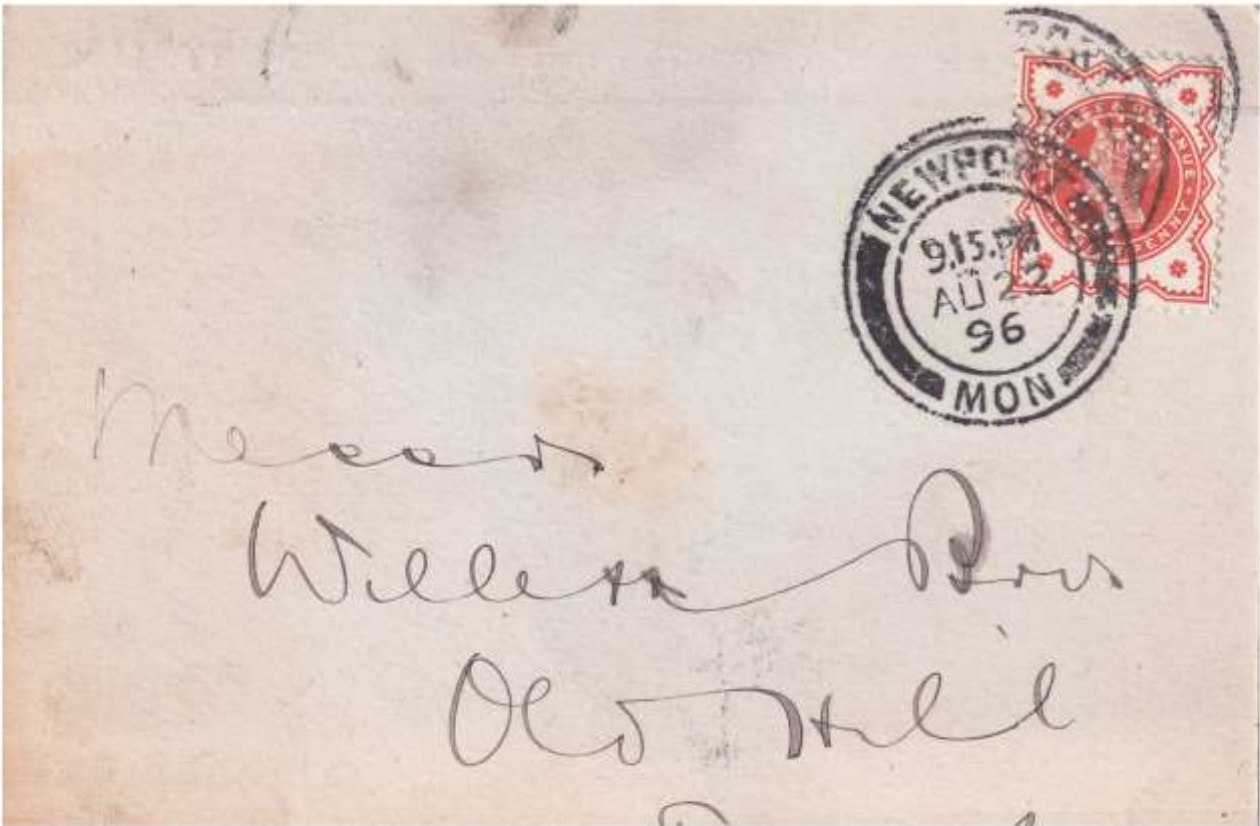 NEWPORT
9.15.PM
AU 22
96
MON
Messrs
Willetts Bros
Old Hill